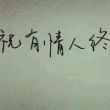 祝有情人终